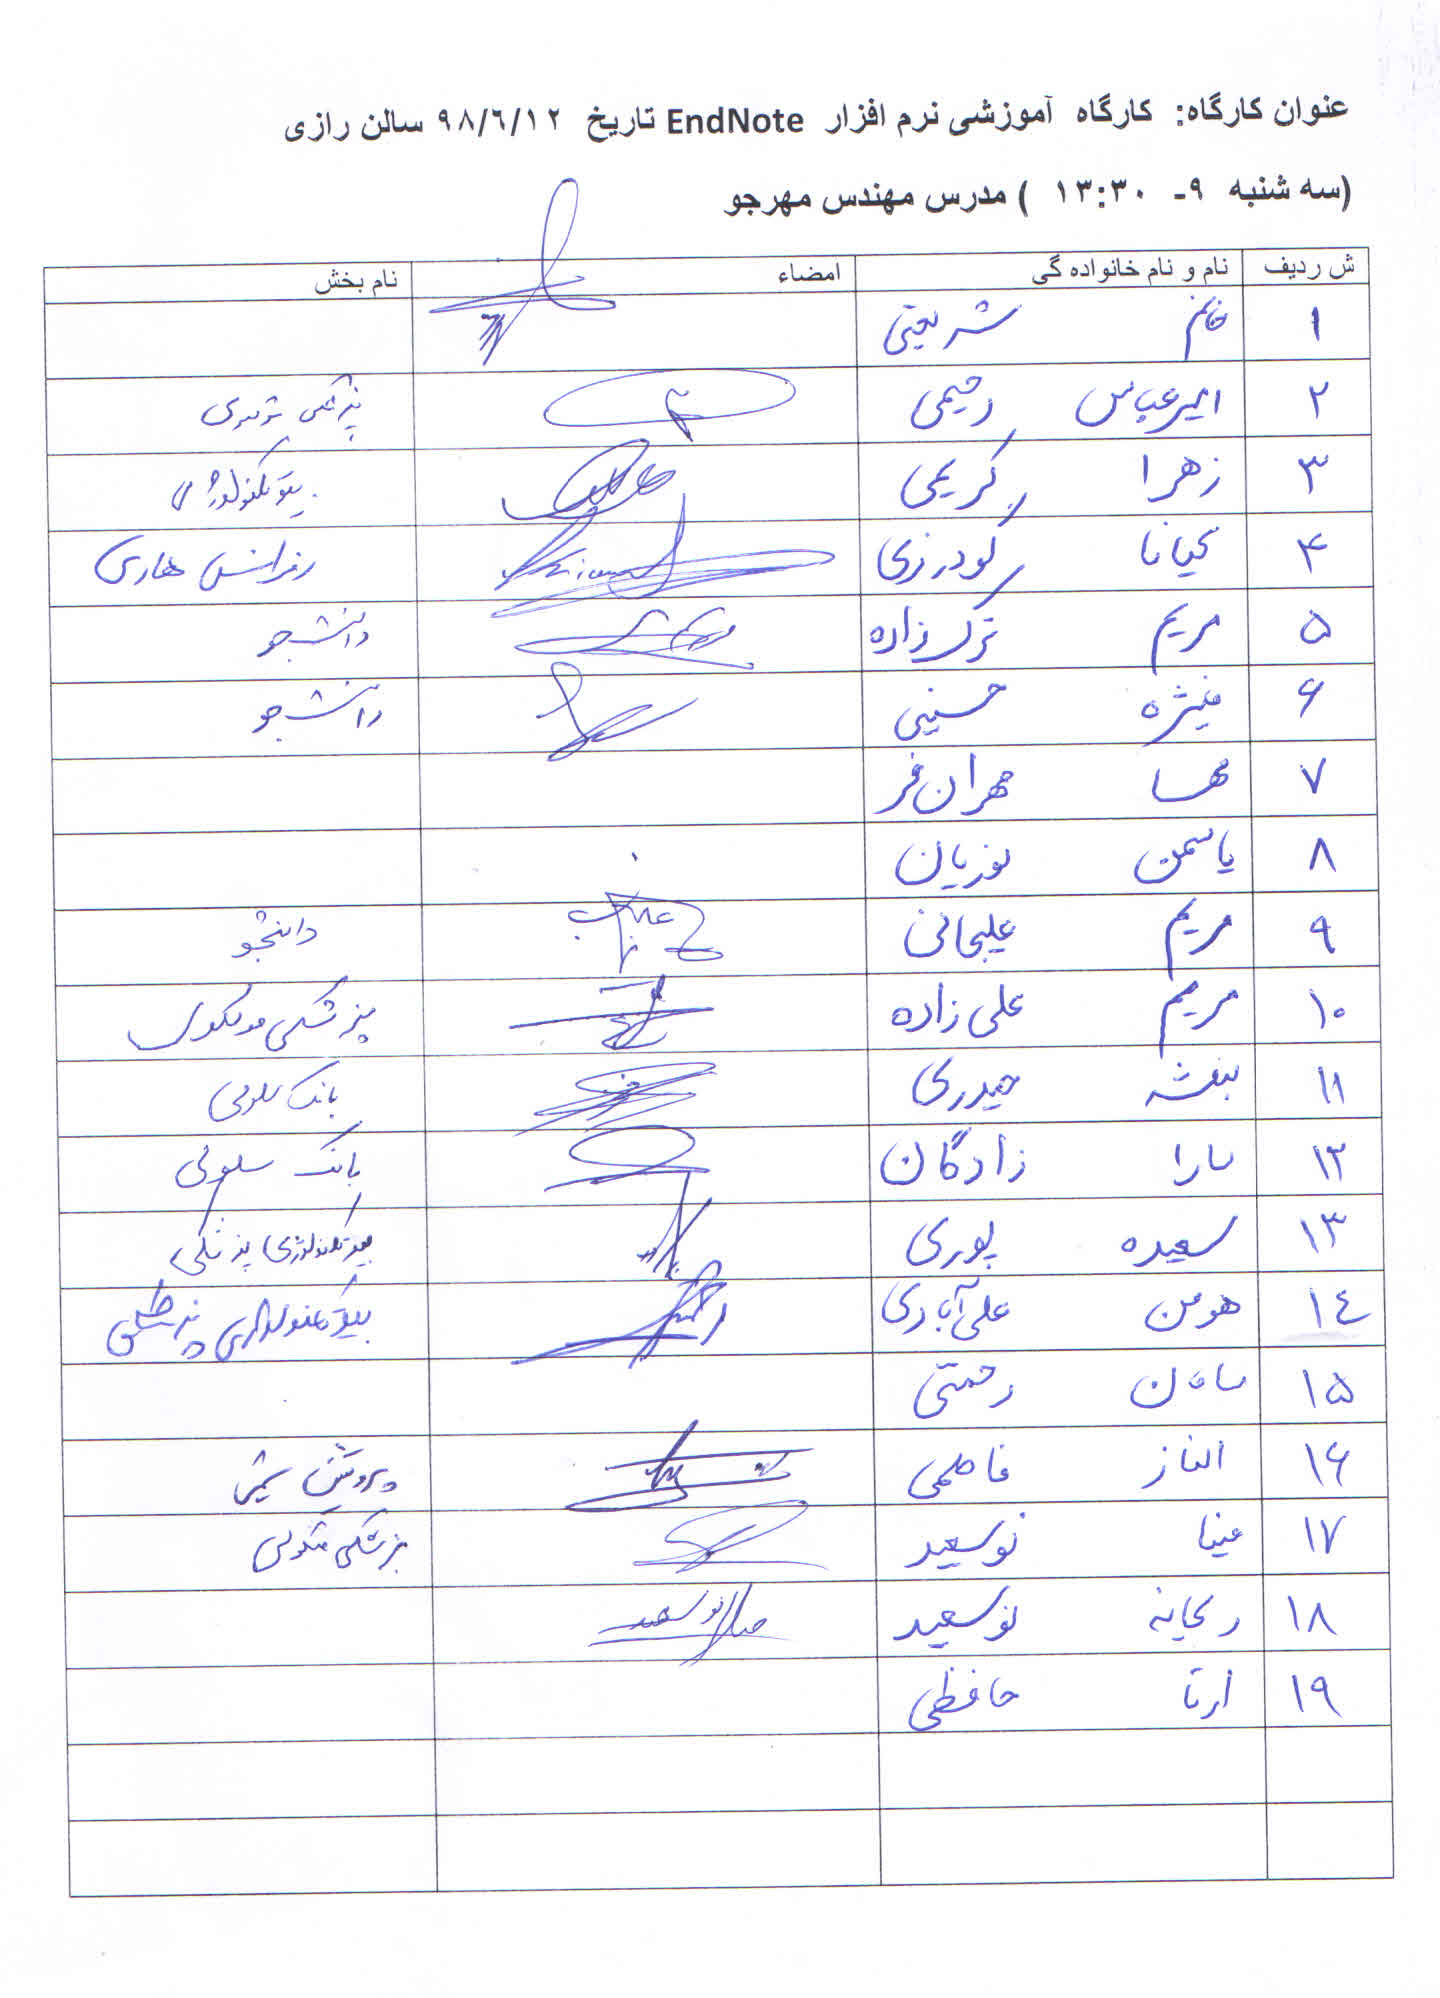 عنوان کارگاه: کارگاه آموزشی نرم افزار EndNote تاریخ ۹۸/۶/۱۲ سالن رازی
(سه شنبه ۹- ۱۳:۳۰ ) مدرس مهندس مهرجو
ش ردیف نام و نام خانواده گی امضاء نام بخش
۱ خانم شریعتی
۲ امیرعباس رحیمی پزشکی
۳ زهرا کریمی بیوتکنولوژی
۴ کیانا گودرزی رفرانس هاری
۵ مریم ترک زاده دانشجو
۶ منیژه حسینی دانشجو
۷ مهسا مهران فر
۸ یاسمن نوریان
۹ مریم علیجانی دانشجو
۱۰ مریم علی زاده پزشکی مولکولی
۱۱ بنفشه حیدری بانک سلولی
۱۲ سارا زادگان بانک سلولی
۱۳ سعیده پوری بیوتکنولوژی پزشکی
۱۴ هومن علی آبادی بیوتکنولوژی پزشکی
۱۵ رحمتی
۱۶ الناز فاطمی
۱۷ مینا نوسعید پزشکی
۱۸ ریحانه نوسعید نوسعید
۱۹ آرتا حافظی